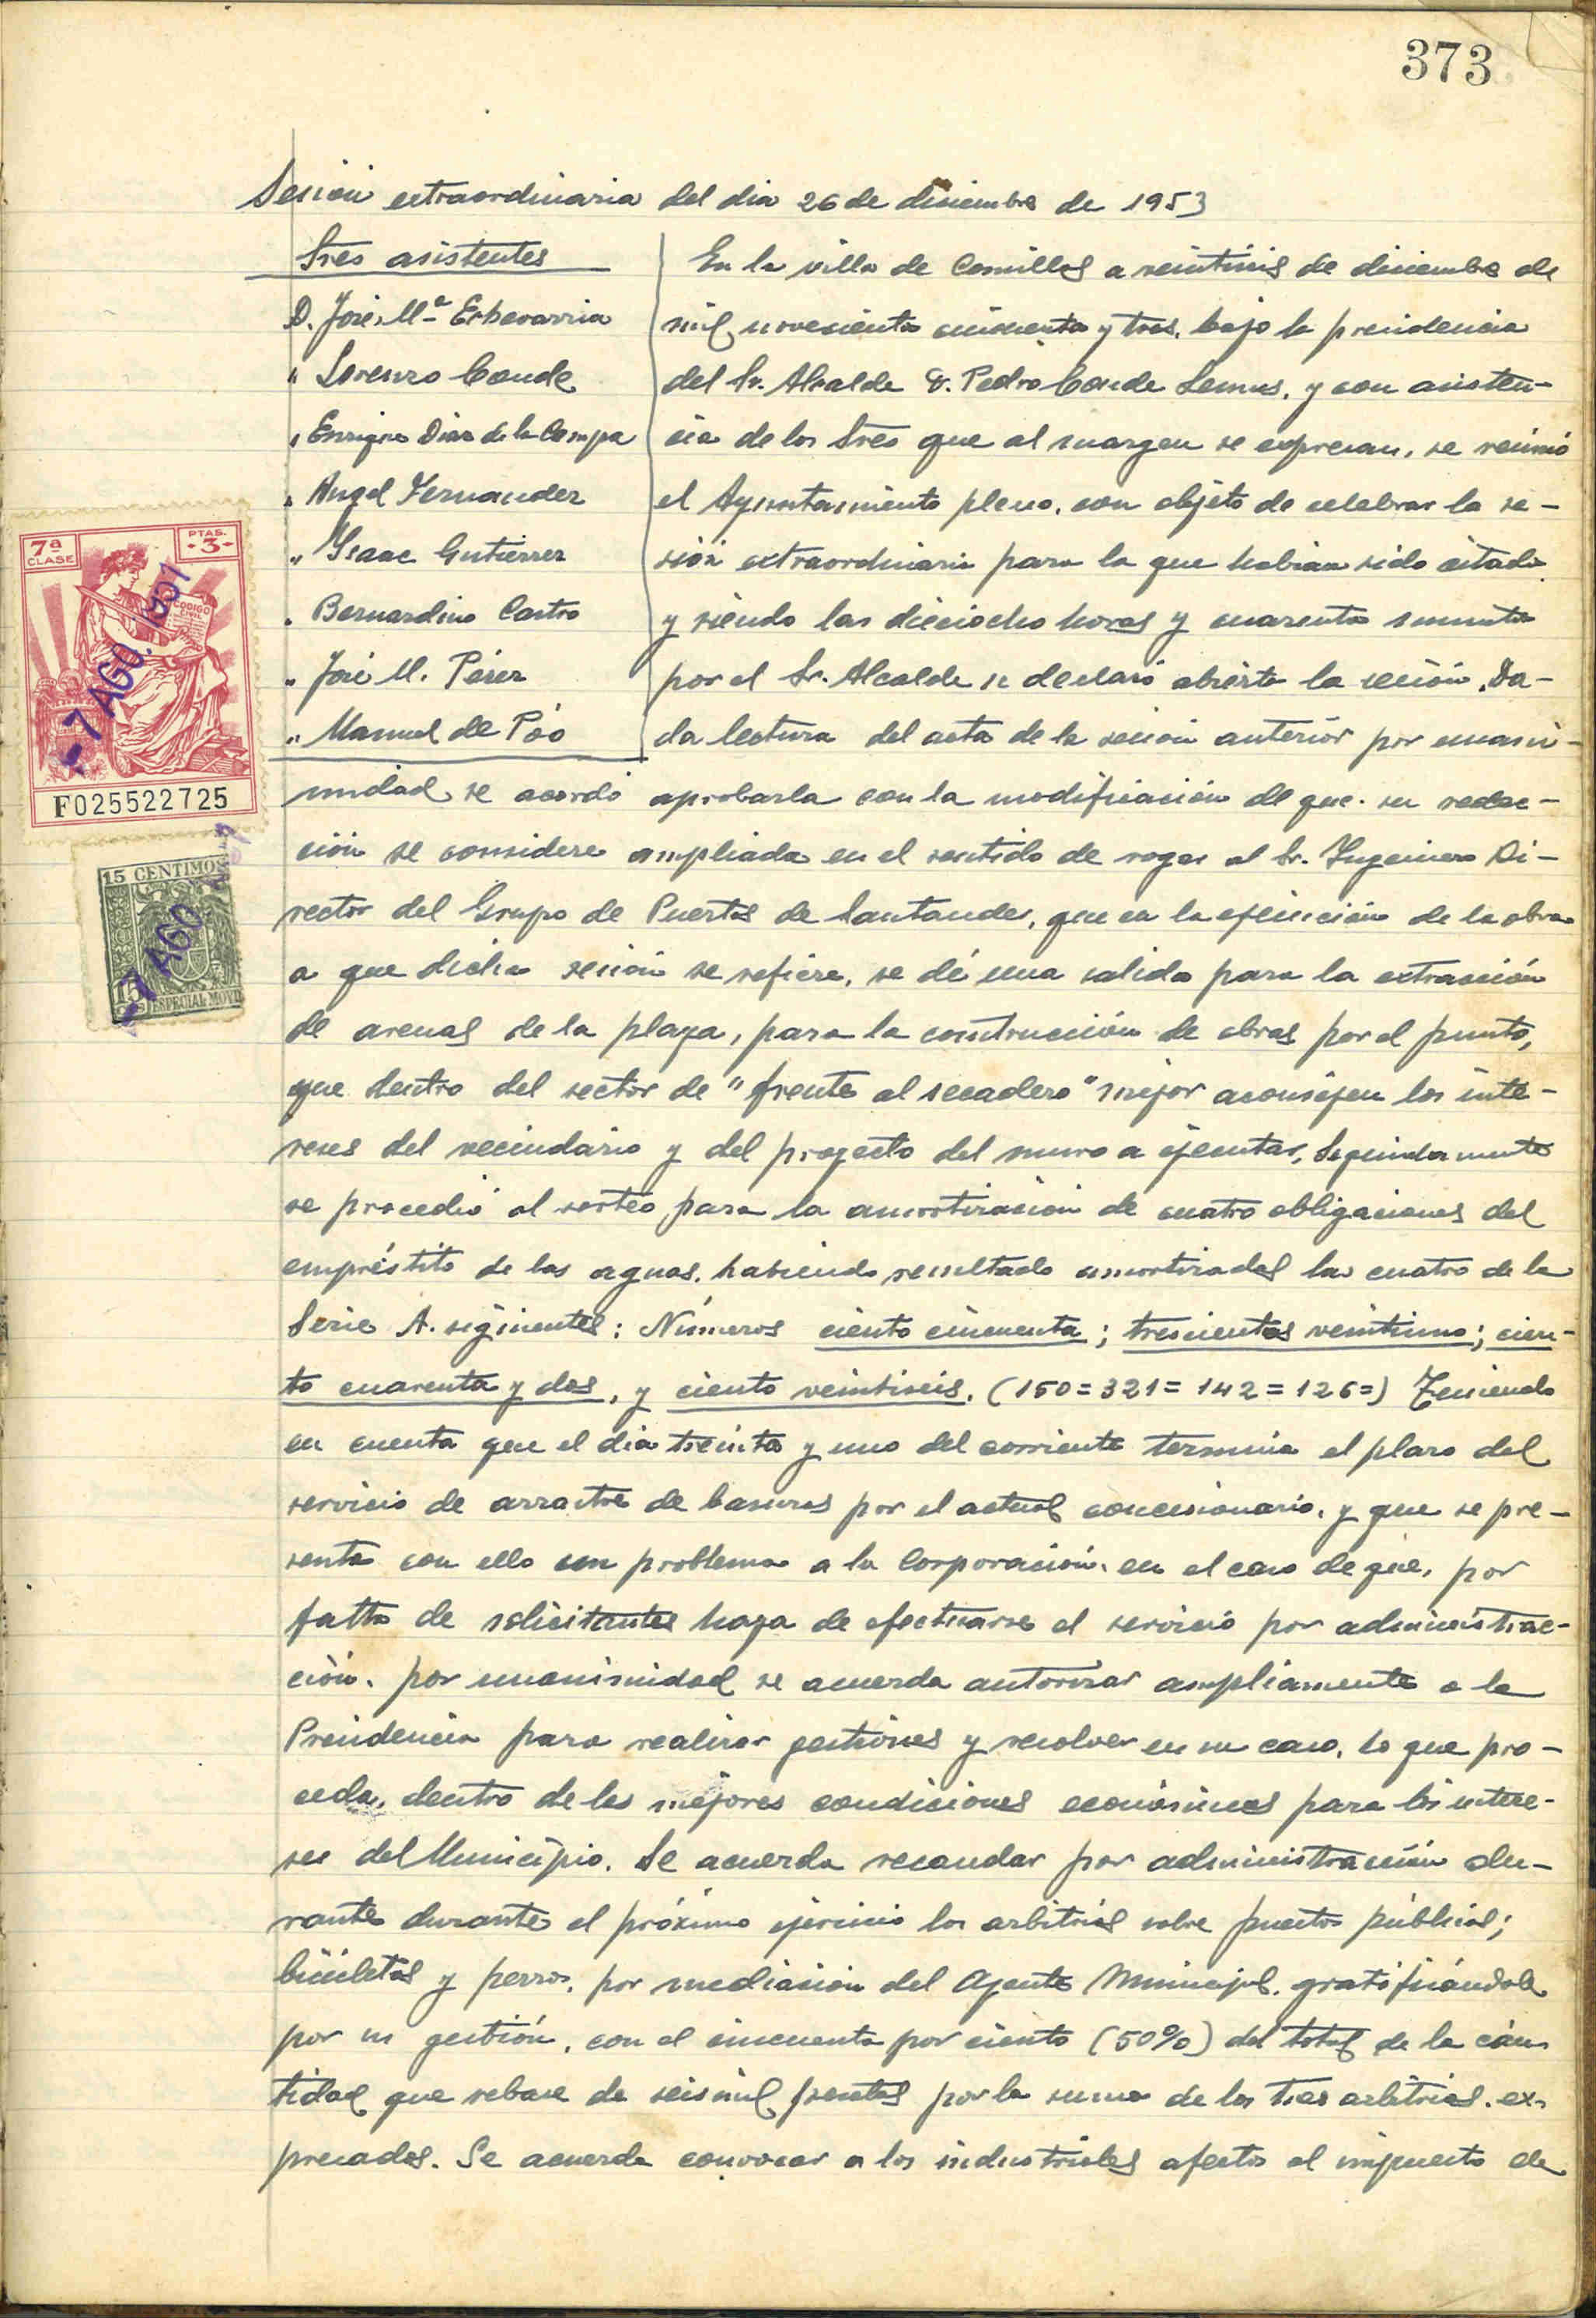 373
Sesión extraordinaria del dia 26 de diciembre de 1953
Sres asistentes
D. José Mª Echevarria
" Lorenzo Conde
" Enrique Diaz de la Campa
" Angel Fernandez
" Isaac Gutierrez
" Bernardino Castro
" José M. Pérez
" Manuel de Póo
En la villa de Comillas a veintiseis de diciembre de
mil novecientos cincuenta y tres, bajo la presidencia
del Sr. Alcalde D. Pedro Conde Lemus, y con asisten-
cia de los Sres que al margen se expresan, se reunió
el Ayuntamiento pleno, con objeto de celebrar la se-
sión extraordinaria para la que habian sido citados
y siendo las dieciocho horas y cuarenta minutos
por el Sr. Alcalde se declaró abierta la sesión. Da-
da lectura del acta de la sesion anterior por unani-
midad se acordó aprobarla con la modificación de que su redac-
ción se considere ampliada en el sentido de rogar al Sr. Ingeniero Di-
rector del Grupo de Puertos de Santander, que en la ejecución de la obra
a que dicha sesión se refiere, se dé una salida para la extracción
de arenas de la playa, para la construcción de obras por el punto,
que dentro del sector de "frente al secadero" mejor aconsejen los inte-
reses del vecindario y del proyecto del muro a ejecutar. Seguidamente
se procedió al sorteo para la amortización de cuatro obligaciones del
empréstito de las aguas, habiendo resultado amortizadas las cuatro de la
Serie A. siguientes: Números ciento cincuenta; trescientos veintiuno; cien-
to cuarenta y dos, y ciento veintiseis. (150=321=142=126=) Teniendo
en cuenta que el dia treinta y uno del corriente termina el plazo del
servicio de arrastre de basuras por el actual concesionario, y que se pre-
senta con ello un problema a la Corporación, en el caso de que, por
falta de solicitantes haya de efectuarse el servicio por administrac-
ción, por unanimidad se acuerda autorizar ampliamente a la
Presidencia para realizar gestiones y resolver en su caso, lo que pro-
ceda, dentro de las mejores condiciones económicas para los intere-
ses del Municipio. Se acuerda recaudar por administración du-
rante durante el próximo ejercicio los arbitrios sobre puestos públicos;
bicicletas y perros, por mediación del Agente Municipal, gratificándole
por su gestión, con el cincuenta por ciento (50%) del total de la can-
tidad que rebase de seis mil pesetas por la suma de los tres arbitrios ex-
presados. Se acuerda convocar a los industriales afectos al impuesto de
7ª
CLASE
PTAS.
-3-
CODIGO
CIVIL
-7 AGO. 1951
F025522725
15 CENTIMOS
-7 AGO
15
ESPECIAL MOVIL